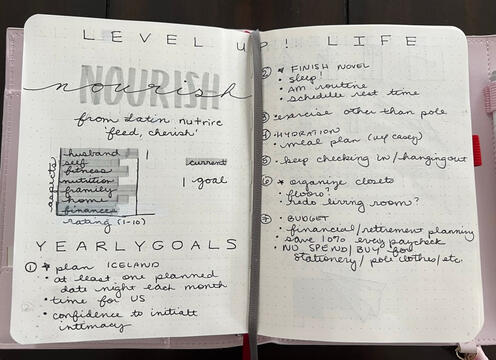 LEVEL UP! LIFE
NOURISH
nourish
from Latin nutrire
'feed, cherish'
aspects
husband
self
fitness
nutrition
family
home
finances
rating (1-10)
current
goal
YEARLY GOALS
① * plan ICELAND
• at least one planned
date night each month
• time for US
• confidence to initiate
intimacy
② * FINISH NOVEL
• sleep!
• AM routine
• schedule rest time
③ exercise other than pole
④ HYDRATION
• meal plan (w/ casey)
⑤ keep checking in/hanging out
⑥ * organize closets
• floors?
• redo living room?
⑦ • BUDGET
• financial/retirement planning
• save 10% every paycheck
• NO SPEND/BUY for
stationery/pole clothes/etc.